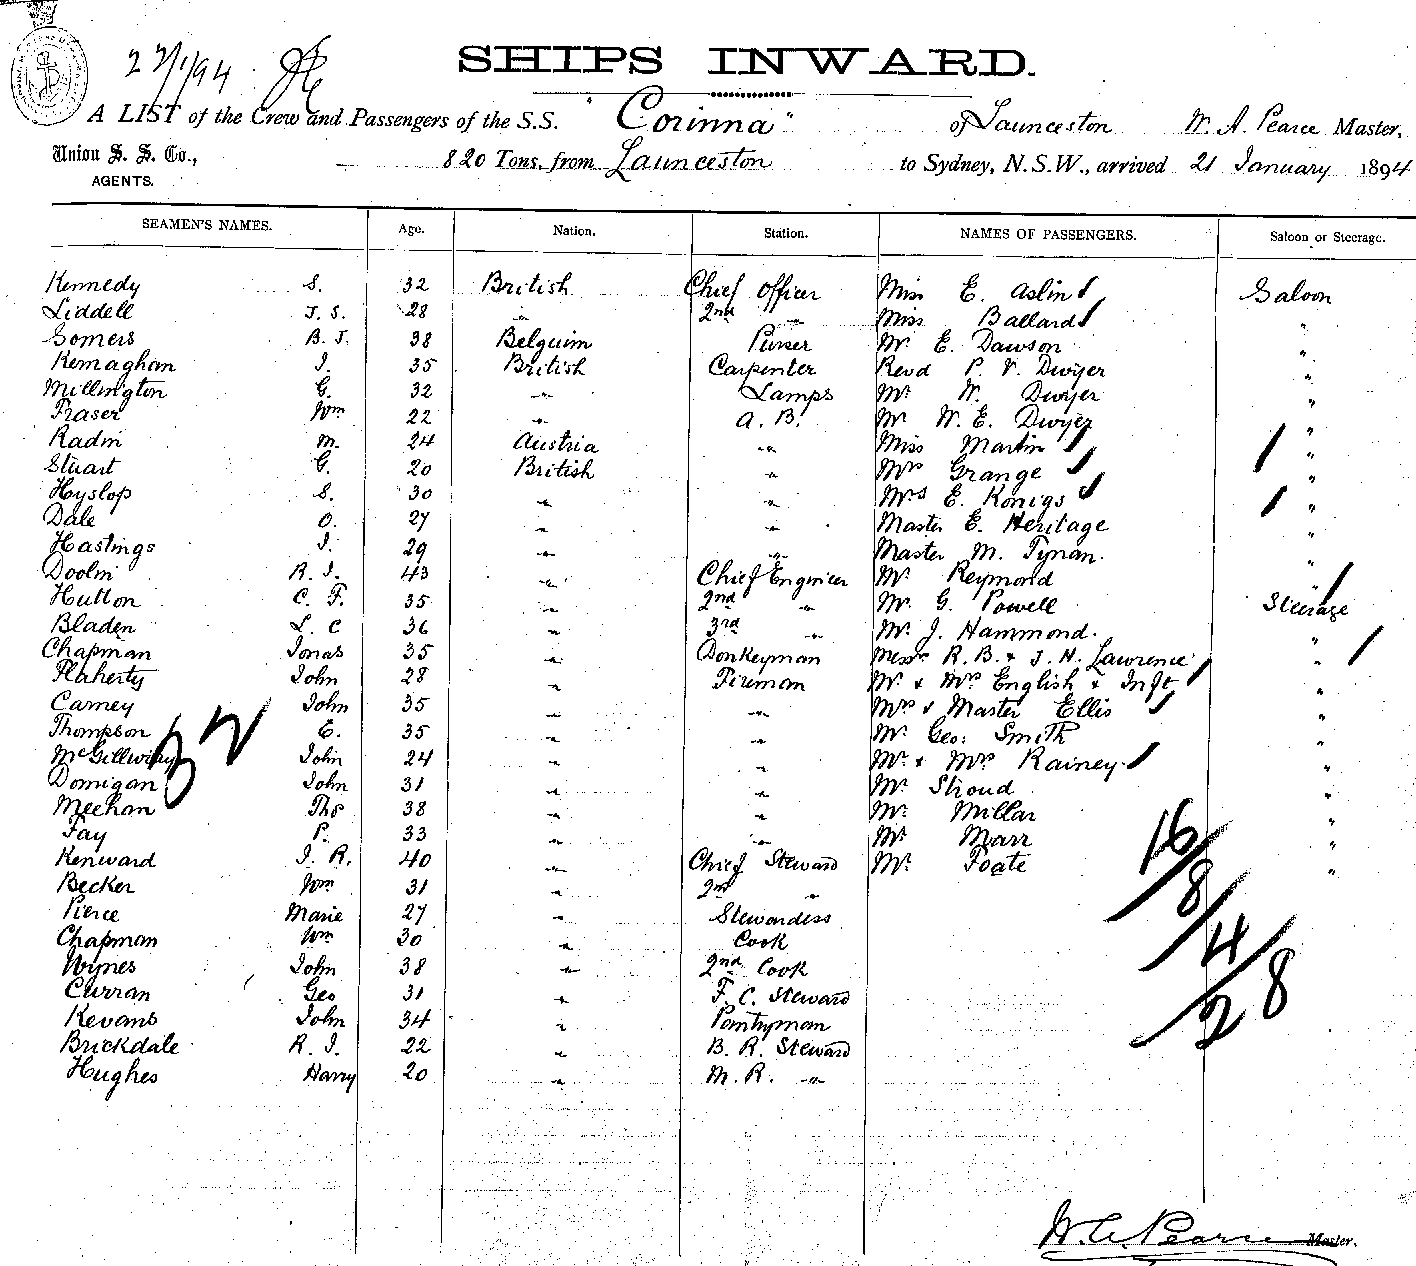 22/1/94
SHIPS INWARD.
A LIST of the Crew and Passengers of the S.S. "Corinna" of Launceston W. A. Pearce Master,
Union S. S. Co.,
AGENTS.
820 Tons, from Launceston to Sydney, N.S.W., arrived 21 January 1894
SEAMEN'S NAMES. Age. Nation. Station. NAMES OF PASSENGERS. Saloon or Steerage.
Kennedy S. 32 British Chief Officer Miss E. Aslin Saloon
Liddell J. S. 28 " 2nd " Miss Ballard "
Somers B. J. 38 Belguim Purser Mr E. Dawson "
Kernaghan J. 35 British Carpenter Revd P. V. Dwyer "
Millington G. 32 " Lamps Mr W. Dwyer "
Fraser Wm 22 " A. B. Mr W. E. Dwyer "
Radin M. 24 Austria " Miss Martin "
Stuart G. 20 British " Mrs Grange "
Hyslop S. 30 " " Mrs E. Konigs "
Dale O. 27 " " Master E. Heritage "
Hastings J. 29 " " Master M. Tynan. "
Doolin R. J. 43 " Chief Engineer Mr Reymond "
Hutton C. F. 35 " 2nd " Mr G. Powell Steerage
Bladen L. C 36 " 3rd " Mr J. Hammond. "
Chapman Jonas 35 " Donkeyman Messrs R. B. & J. H. Lawrence "
Flaherty John 28 " Fireman Mr & Mrs English & Inft "
Carney John 35 " " Mrs & Master Ellis "
Thompson E. 35 " " Mr Geo: Smith "
John 24 " " Mr & Mrs Rainey "
Domigan John 31 " " Mr Stroud "
Meehan Ths 38 " " Mr Millar "
Fay P. 33 " " Mr Marr "
Kenward J. R. 40 " Chief Steward Mr Foate "
Becker Wm 31 " 2nd "
Pierce Marie 27 " Stewardess
Chapman Wm 30 " Cook
Wynes John 38 " 2nd Cook
Curran Geo 31 " F. C. Steward
Kevans John 34 " Pantryman
Brickdale R. J. 22 " B. R. Steward
Hughes Harry 20 " M. R. "
32
16/8/4/28
W. A. Pearce Master.